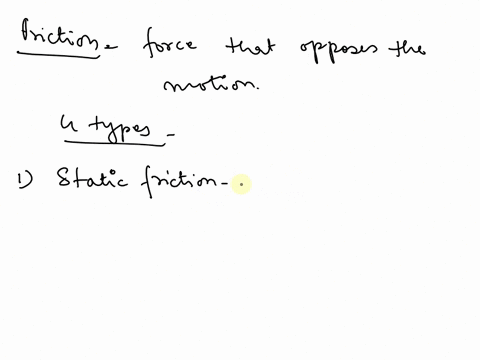 Friction - force that opposes the
motion.
4 types -
1) Static friction -